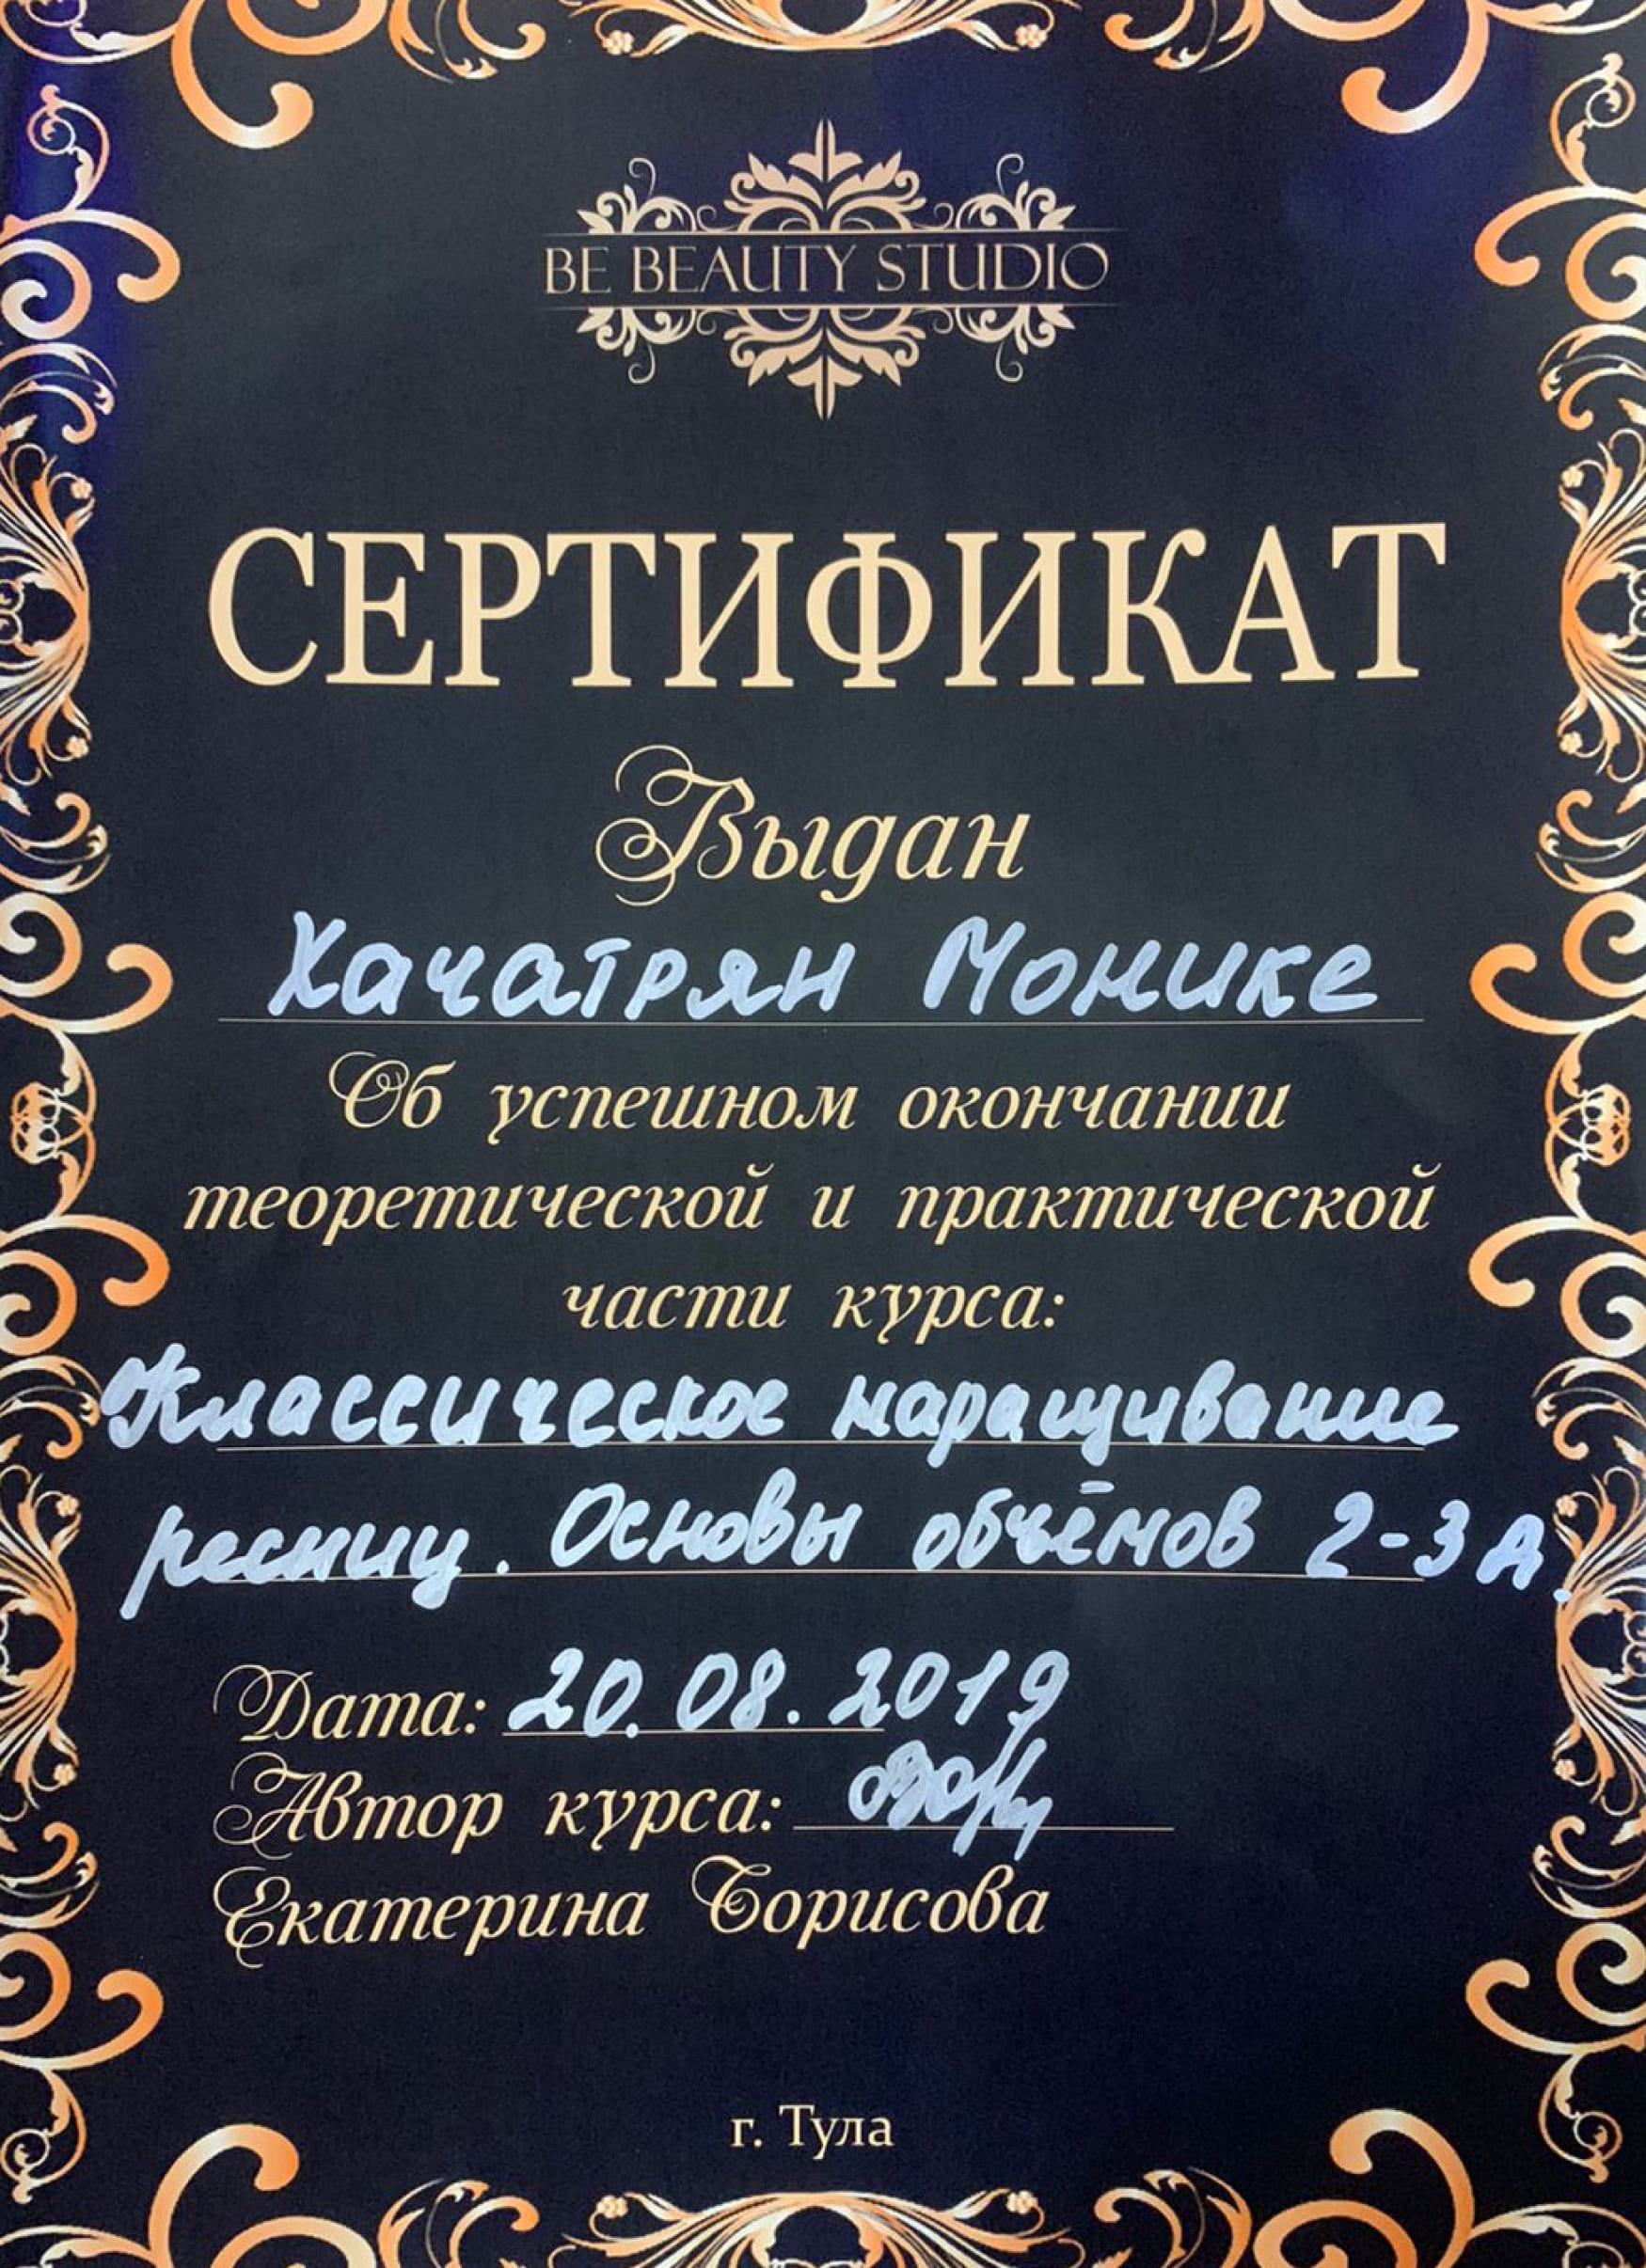 BE BEAUTY STUDIO
СЕРТИФИКАТ
Выдан
Хачатрян Монике
Об успешном окончании
теоретической и практической
части курса:
Классическое наращивание
ресниц. Основы объёмов 2-3 Д.
Дата: 20.08.2019
Автор курса:
Екатерина Борисова
г. Тула